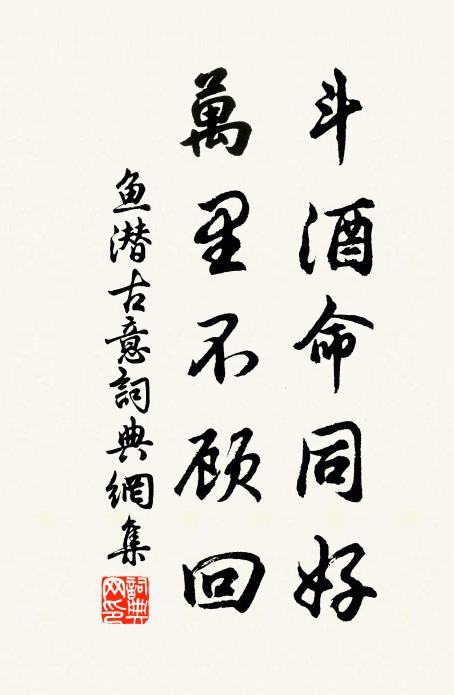 斗酒命同好
萬里不顾回
鱼潜古意詞典網集
詞典網印